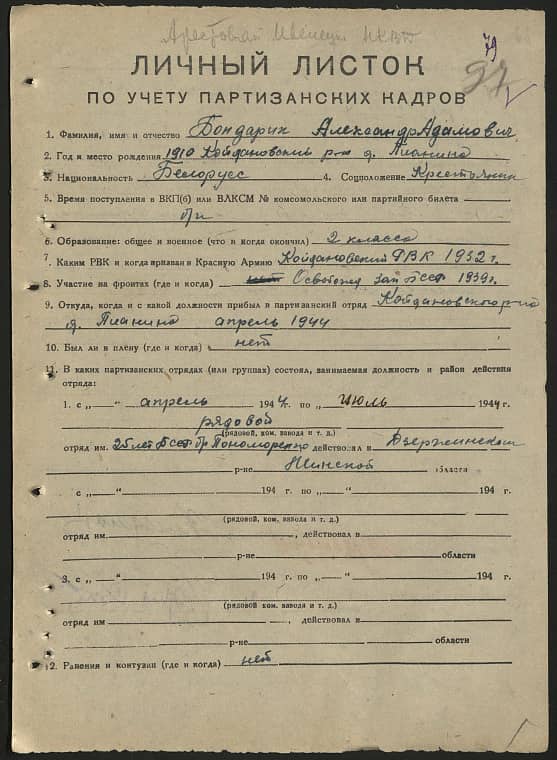 Арестован Ивенецк НКВД
79
97
ЛИЧНЫЙ ЛИСТОК
ПО УЧЕТУ ПАРТИЗАНСКИХ КАДРОВ
1. Фамилия, имя и отчество Бондарик Александр Адамович
2. Год и место рождения 1910 Койдановский р-н д. Пианино
3. Национальность Белорусс 4. Соцположение Крестьянин
5. Время поступления в ВКП(б) или ВЛКСМ № комсомольского или партийного билета
б/п
6. Образование: общее и военное (что и когда окончил) 2 класса
7. Каким РВК и когда призван в Красную Армию Койдановский РВК 1932 г.
8. Участие на фронтах (где и когда) нет Освобожд зап БССР 1939 г.
9. Откуда, когда и с какой должности прибыл в партизанский отряд Койдановского р-на
д. Пианино апрель 1944
10. Был ли в плену (где и когда) нет
11. В каких партизанских отрядах (или группах) состоял, занимаемая должность и район действия
отряда:
1. с „—“ апрель 1944 г. по „—“ июль 1944 г.
рядовой
(рядовой, ком. взвода и т. д.)
отряд им. 25 лет БССР бр Пономоренко действовал в Дзержинском
р-не Минской области
с „—“ 194 г. по „—“ 194 г.
(рядовой, ком. взвода и т. д.)
отряд им. , действовал в
р-не области
3. с „—“ 194 г. по „—“ 194 г.
(рядовой, ком. взвода и т. д.)
отряд им , действовал в
р-не области
12. Ранения и контузии (где и когда) нет